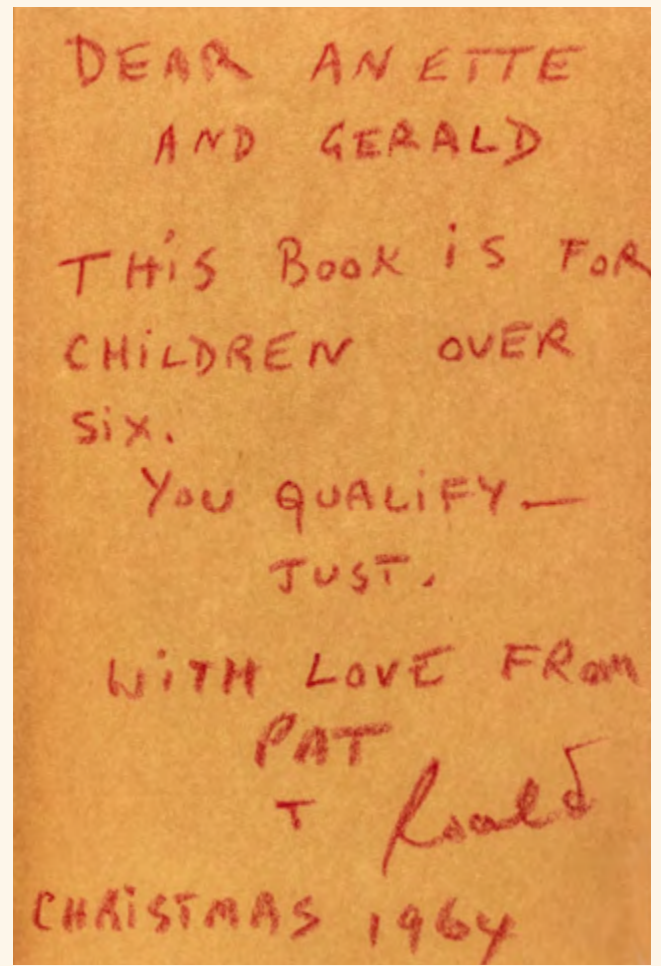 DEAR ANETTE
AND GERALD
THiS BOOK iS FOR
CHiLDREN OVER
SiX.
YOU QUALiFY—
JUST.
WiTH LOVE FROM
PAT
+ Roald
CHRiSTMAS 1964